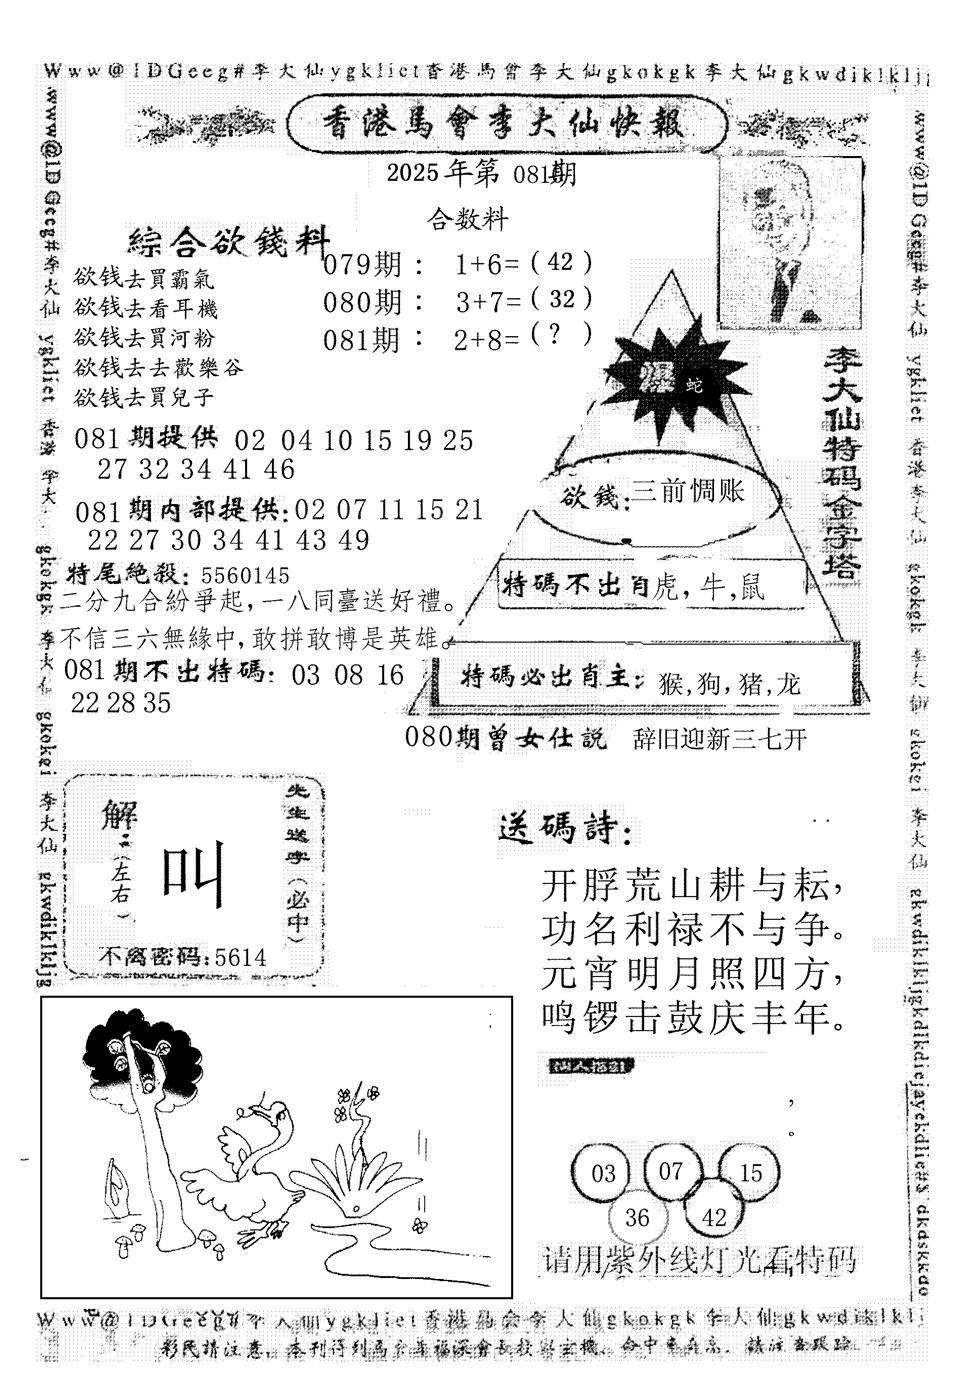 Www@1DGeeg#李大仙ygkliet香港馬會李大仙gkokgk李大仙gkwdiklkljg
香港馬會李大仙快報
2025年第 081期
合数料
綜合欲錢料
欲钱去買霸氣
欲钱去看耳機
欲钱去買河粉
欲钱去去歡樂谷
欲钱去買兒子
079期： 1+6=（42）
080期： 3+7=（32）
081期： 2+8=（?）
081期提供 02 04 10 15 19 25
27 32 34 41 46
081期内部提供:02 07 11 15 21
22 27 30 34 41 43 49
特尾絶殺: 5560145
二分九合紛爭起，一八同臺送好禮。
不信三六無緣中，敢拼敢博是英雄。
081期不出特碼: 03 08 16
22 28 35
李大仙特码金字塔
爆 蛇
欲錢:三前惆账
特碼不出肖虎,牛,鼠
特碼必出肖主: 猴,狗,猪,龙
080期曾女仕説 辞旧迎新三七开
解:(左右)
叫
先生送字(必中)
不离密码:5614
送碼詩:
开脬荒山耕与耘，
功名利禄不与争。
元宵明月照四方，
鸣锣击鼓庆丰年。
仙人指引
，
。
03 07 15
36 42
请用紫外线灯光看特码
Www@1DGeeg#李大仙ygkliet香港馬会李大仙gkokgk李大仙gkwdiklklj
彩民請注意,本刊得到馬